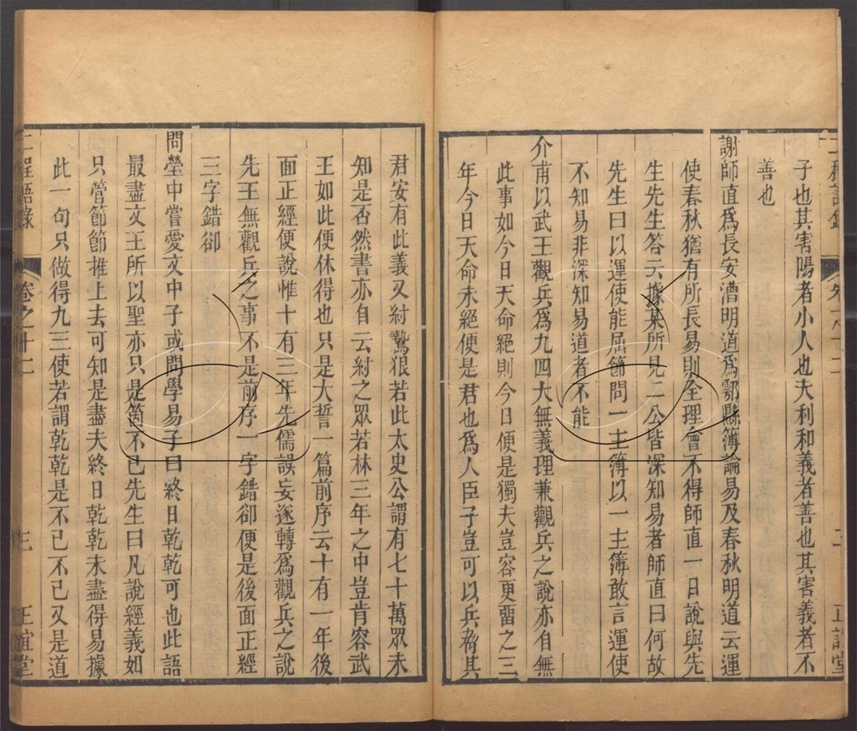 子也其害陽者小人也夫利和義者善也其害義者不
善也
謝師直爲長安漕明道爲鄠縣簿論易及春秋明道云運
使春秋猶有所長易則全理會不得師直一日說與先
生先生答云據某所見二公皆深知易者師直曰何故
先生曰以運使能屈節問一主簿以一主簿敢言運使
不知易非深知易道者不能
介甫以武王觀兵爲九四大無義理兼觀兵之說亦自無
此事如今日天命絕則今日便是獨夫豈容更畱之三
年今日天命未絕便是君也爲人臣子豈可以兵脅其
君安有此義又紂鷙狠若此太史公謂有七十萬眾未
知是否然書亦自云紂之眾若林三年之中豈肯容武
王如此便休得也只是大誓一篇前序云十有一年後
面正經便說惟十有三年先儒誤妄遂轉爲觀兵之說
先王無觀兵之事不是前序一字錯卻便是後面正經
三字錯卻
問瑩中嘗愛文中子或問學易子曰終日乾乾可也此語
最盡文王所以聖亦只是箇不已先生曰凡說經義如
只管節節推上去可知是盡夫終日乾乾未盡得易據
此一句只做得九三使若謂乾乾是不已不已又是道
二程語錄 卷之十二 三 正誼堂